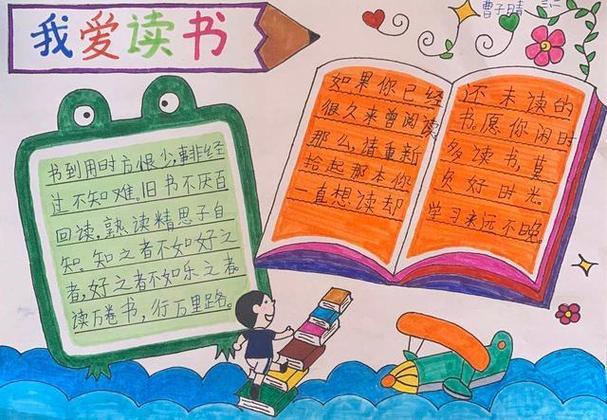 我爱读书
曹子晴 三.二
书到用时方恨少,事非经
过不知难。旧书不厌百
回读,熟读精思子自
知。知之者不如好之
者,好之者不如乐之者。
读万卷书,行万里路。
如果你已经
很久未曾阅读
那么,请重新
拾起那本你
一直想读却
还未读的
书。愿你闲时
多读书,莫
负好时光。
学习永远不晚。